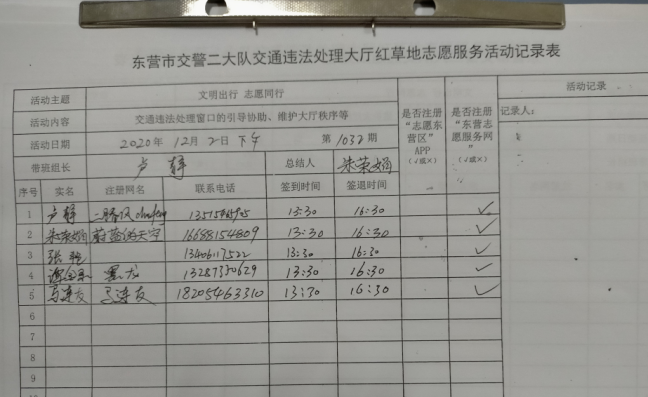 东营市交警二大队交通违法处理大厅红草地志愿服务活动记录表
活动主题 文明出行 志愿同行 是否注册“志愿东营区”APP（√或×） 是否注册“东营志愿服务网”（√或×） 活动记录
活动内容 交通违法处理窗口的引导协助、维护大厅秩序等 记录人：
活动日期 2020年 12月 2日 下午 第1032期
带班组长 卢静 总结人 朱荣娟
序号 实名 注册网名 联系电话 签到时间 签退时间
1 卢静 13:30 16:30 ✓
2 朱荣娟 蔚蓝的天空 16688154809 13:30 16:30 ✓
3 张 13406117522 13:30 16:30 ✓
4 黑龙 13287330629 13:30 16:30 ✓
5 马连友 马连友 18205463310 13:30 16:30 ✓
6
7
8
9